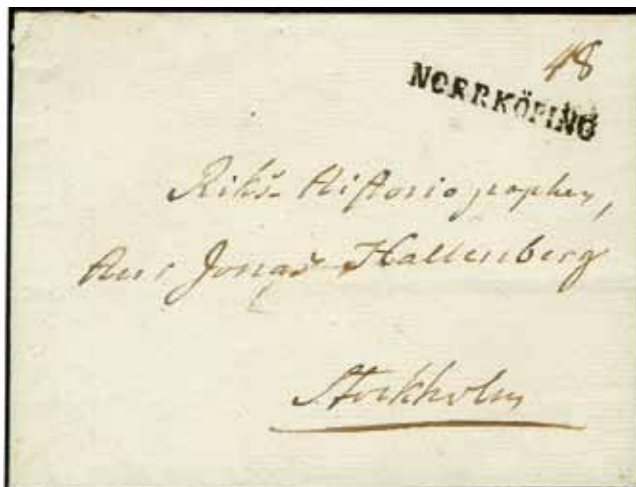 48
NORRKÖPING
Riks-Historiographen,
Jonas Hallenberg
Stockholm